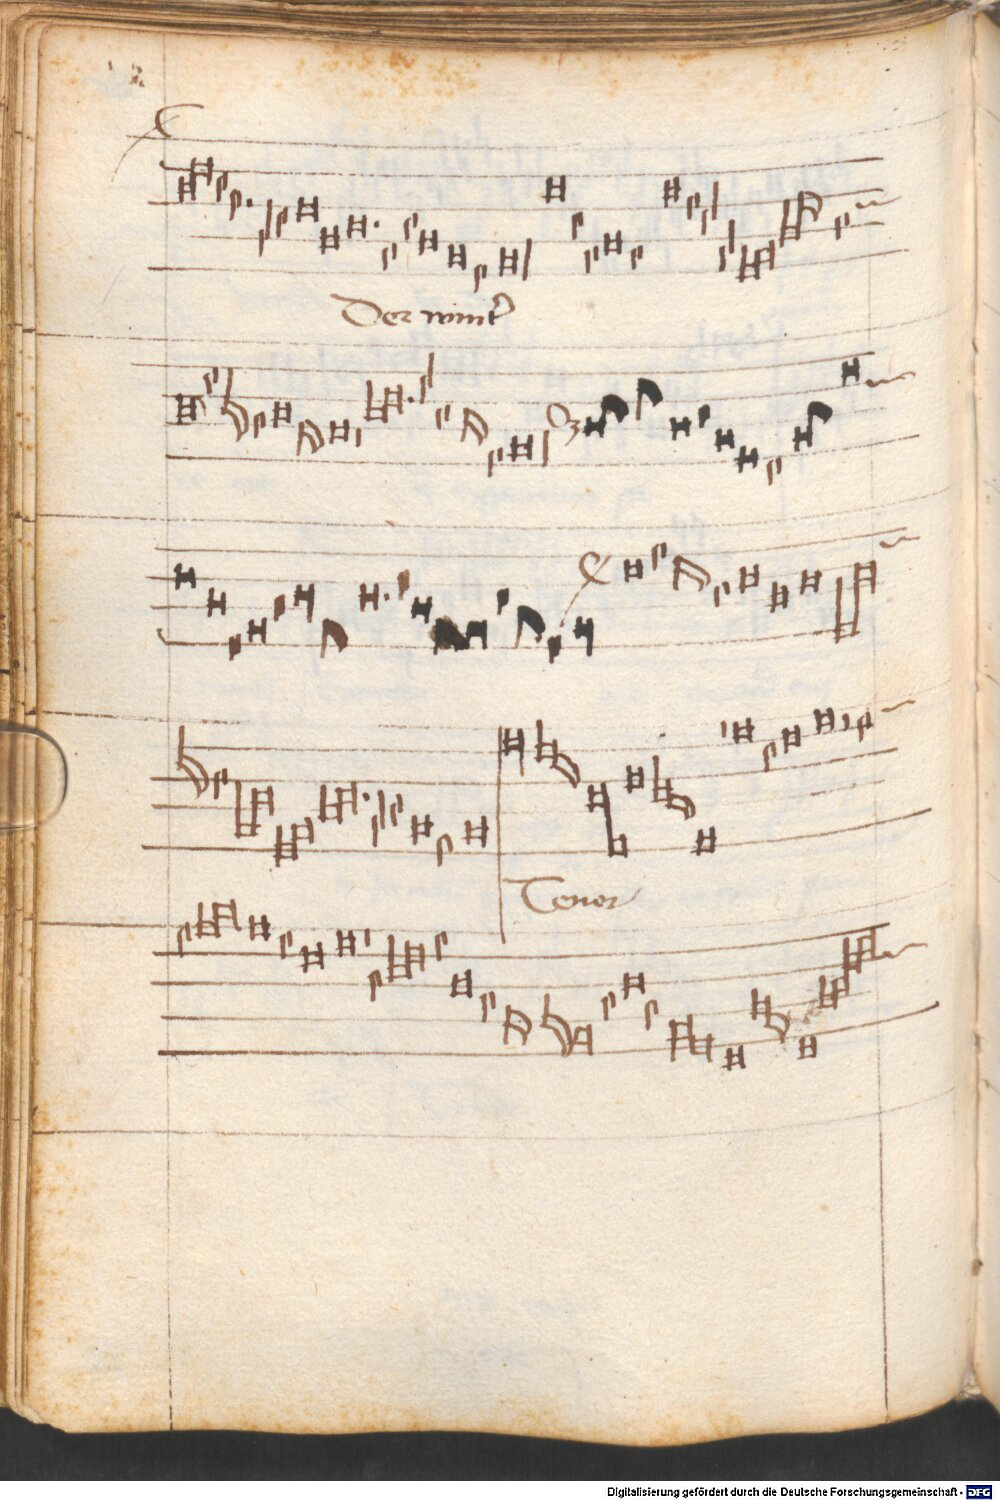 Der wint̄
Tenor
Digitalisierung gefördert durch die Deutsche Forschungsgemeinschaft - DFG